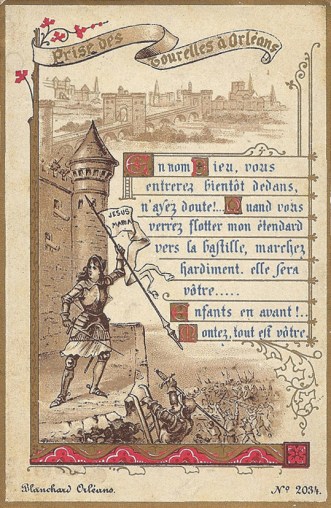 Prise des Tourelles à Orléans
JESUS
MARIA
En nom Dieu, vous
entrerez bientôt dedans,
n'ayez doute!.. Quand vous
verrez flotter mon étendard
vers la bastille, marchez
hardiment. elle sera
vôtre.....
Enfants en avant!..
Montez, tout est vôtre
Blanchard Orléans.
Nº 2034.